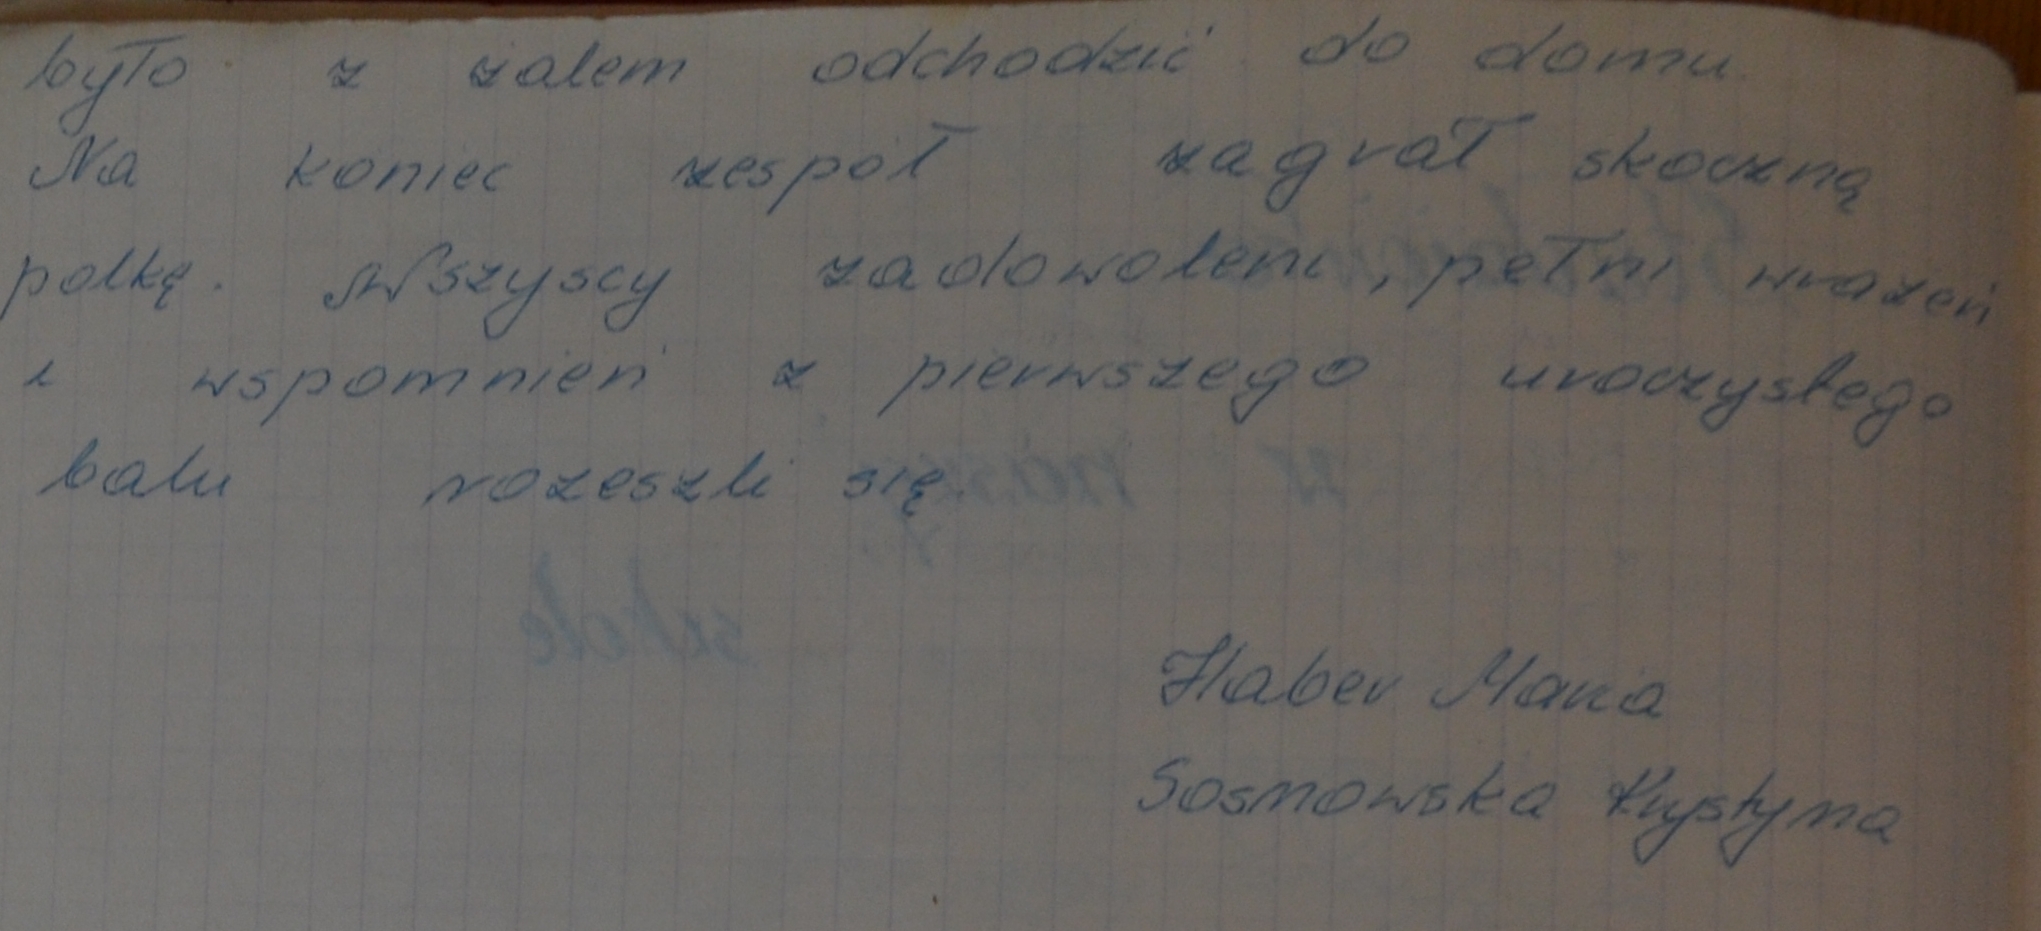 było z żalem odchodzić do domu
Na koniec zespół zagrał skoczną
polkę. Wszyscy zadowoleni, pełni wrażeń
i wspomnień z pierwszego uroczystego
balu rozeszli się.
Haber Maria
Sosnowska Krystyna